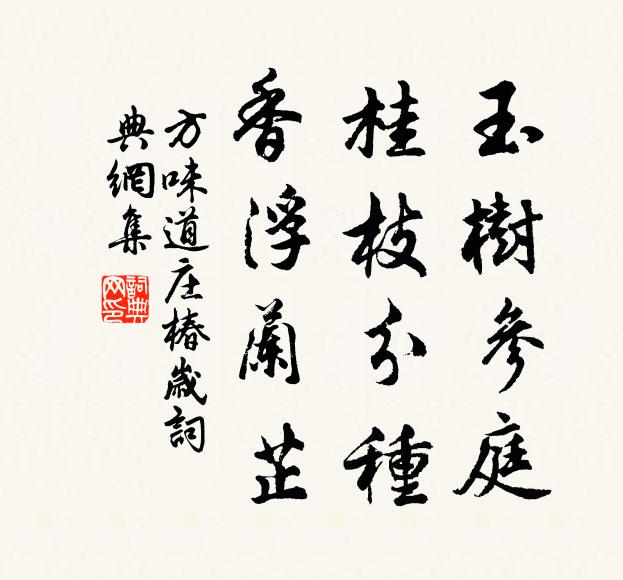 玉樹參庭
桂枝分種
香浮蘭芷
方味道庄椿歲詞
典網集
詞典網印